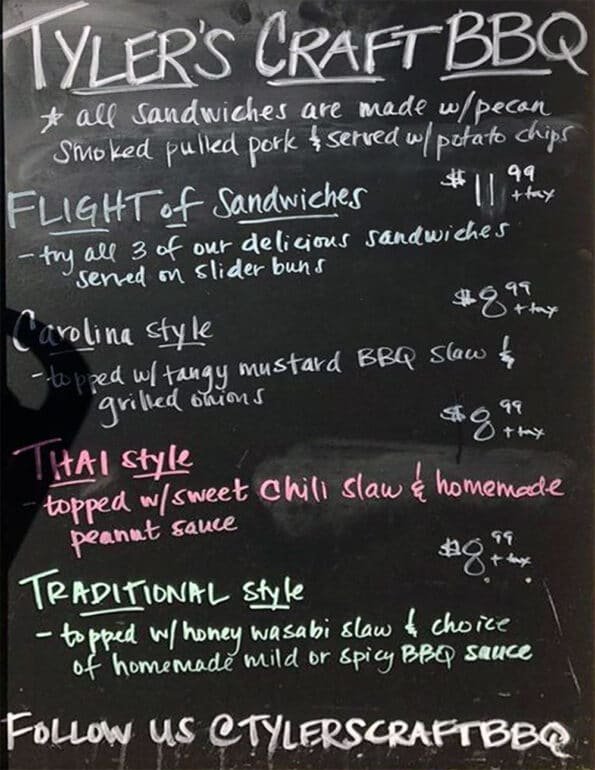 TYLER'S CRAFT BBQ
* all sandwiches are made w/pecan
smoked pulled pork & served w/potato chips
FLIGHT of Sandwiches $11.99 + tax
- try all 3 of our delicious sandwiches
served on slider buns
Carolina style $8.99 + tax
- topped w/tangy mustard BBQ slaw &
grilled onions
THAI style $8.99 + tax
- topped w/sweet chili slaw & homemade
peanut sauce
TRADITIONAL style $8.99 + tax
- topped w/honey wasabi slaw & choice
of homemade mild or spicy BBQ sauce
FOLLOW US @TYLERSCRAFTBBQ